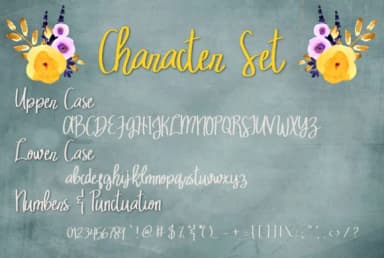 Character Set
Upper Case
ABCDEFGHIJKLMNOPQRSTUVWXYZ
Lower Case
abcdefghijklmnopqrstuvwxyz
Numbers & Punctuation
0123456789 ' ! @ # $ % & * ( ) _ - + = { [ ] } | \ : ; " ' , . < > / ?